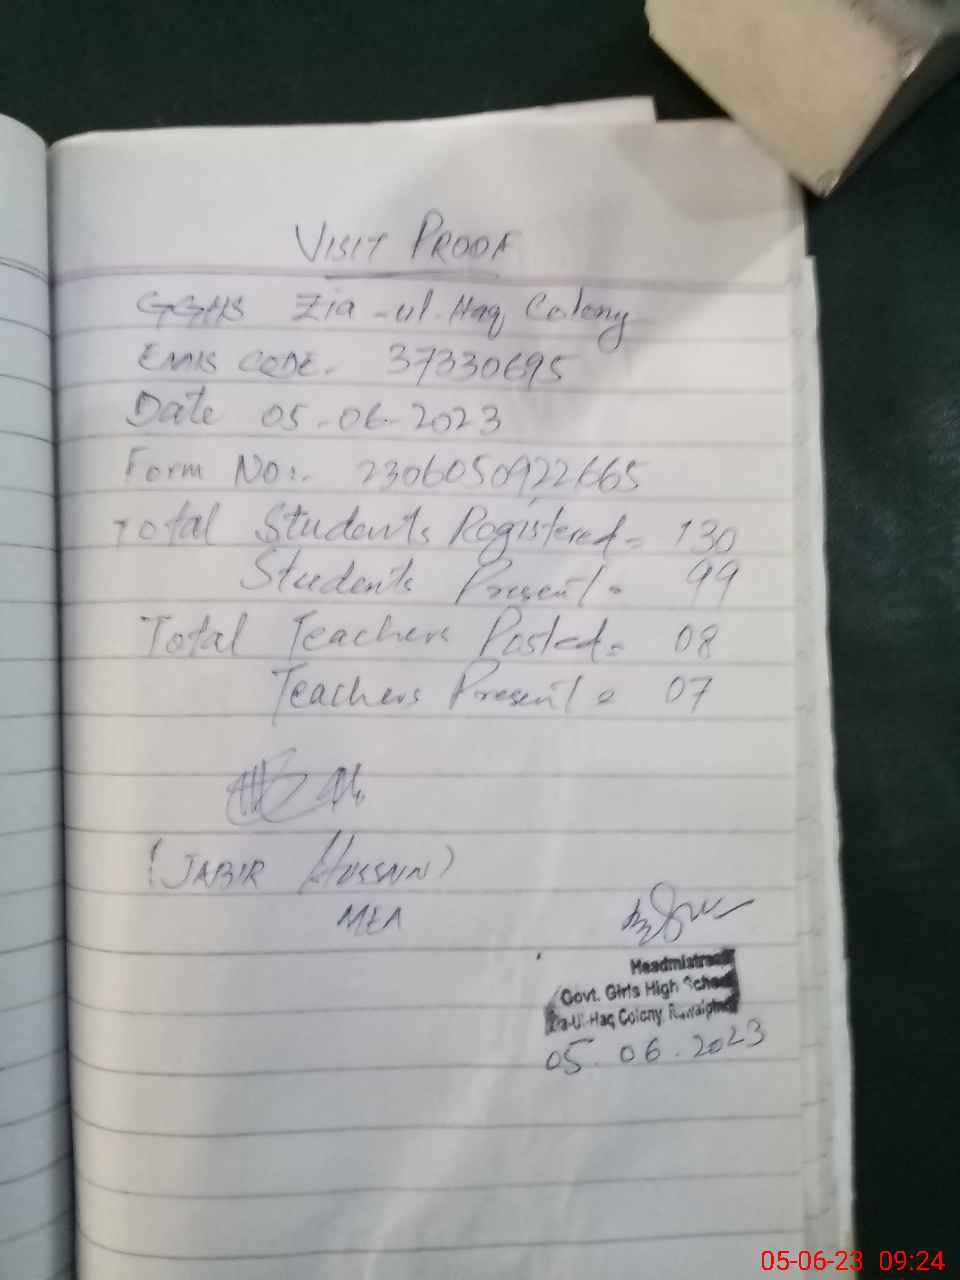 VISIT PROOF
GGHS Zia-ul-Haq Colony
EMIS CODE- 37330695
Date 05-06-2023
Form No:- 2306050922665
Total Students Registered = 130
Students Present = 99
Total Teachers Posted = 08
Teachers Present = 07
(JABIR HUSSAIN)
MEA
Headmistress
Govt. Girls High School
Zia-Ul-Haq Colony, Rawalpindi
05.06.2023
05-06-23 09:24